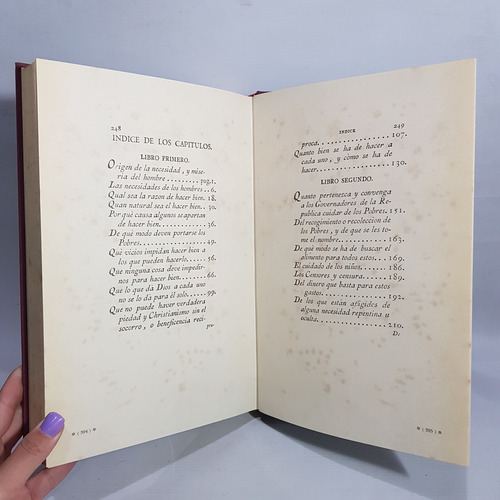 248
INDICE DE LOS CAPITULOS.
LIBRO PRIMERO.
Origen de la necesidad, y mise-
ria del hombre ......... pag.1.
Las necesidades de los hombres .. 6.
Qual sea la razon de hacer bien. 18.
Quan natural sea el hacer bien. 30.
Por qué causa algunos se apartan
de hacer bien.............. 36.
De qué modo deven portarse los
Pobres.................. 49.
Qué vicios impidan hacer bien a
los que pueden hacerlo...... 56.
Que ninguna cosa deve impedir-
nos para hacer bien......... 66.
Que lo que dá Dios a cada uno
no se lo dá para él solo..... 99.
Que no puede haver verdadera
piedad y Christianismo sin el
socorro, o beneficencia reci-
pro-
* ( 394 ) *
249
INDICE
proca................. 107.
Quanto bien se ha de hacer a
cada uno, y cómo se ha de
hacer.................. 130.
LIBRO SEGUNDO.
Quanto pertenezca y convenga
a los Governadores de la Re-
publica cuidar de los Pobres. 151.
Del recogimiento o recoleccion de
los Pobres, y de que se les to-
me el nombre............. 163.
De qué modo se ha de buscar el
alimento para todos estos... 169.
El cuidado de los niños....... 186.
Los Censores y censura....... 189.
Del dinero que basta para estos
gastos.................. 192.
De los que están afligidos de
alguna necesidad repentina u
oculta.................. 210.
D.
* ( 395 ) *